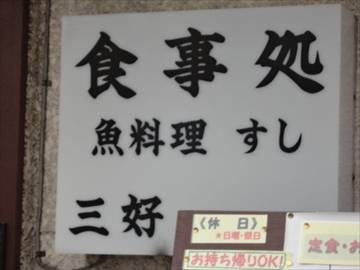 食事処
魚料理 すし
三好
《休 日》
*日曜・祭日
お持ち帰りOK!
定食・お